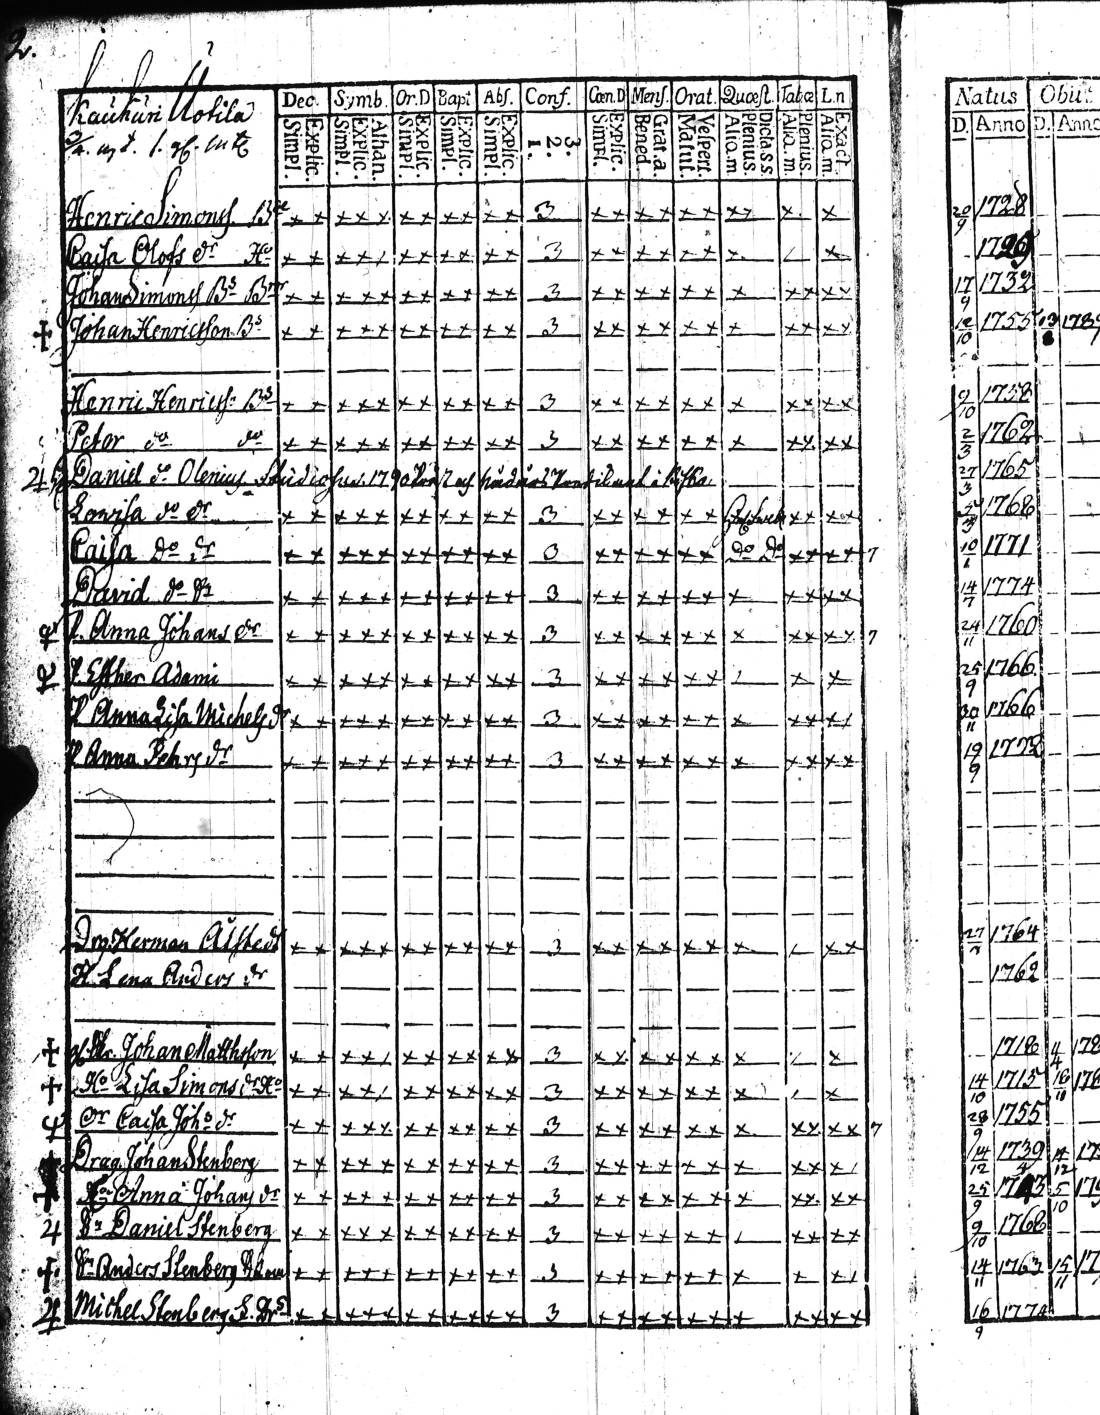 2.
Kaukuri Uotila
Dec. Symb. Or.D Bapt Abs. Conf. Cœn.D Mens. Orat. Quæst. Tabœ L.n Natus Obiit
Simpl. Explic. Simpl. Explic. Athan. Simpl. Explic. Simpl. Explic. Simpl. Explic. 1. 2. 3. Simpl. Explic. Bened. Grat.a. Matut. Vespert. Alio.m. Plenius. Dictass Alio.m. Plenius. Alio.m. Exact. D. Anno D. Anno
Henric Simonss x x x x x x x x x x x 3 x x x x x x x x x x 20/9 1728
Caisa Olofs dr Ho x x x x / x x x x x x 3 x x x x x x x / x 1726
Johan Simonss Bs Br x x x x x x x x x x x 3 x x x x x x x x x x x 17/9 1732
Johan Henricsson Bs x x x x x x x x x x x 3 x x x x x x x x x x x 12/10 1755 13 178
Henric Henricss Bs x x x x x x x x x x x 3 x x x x x x x x x x x 9/10 1758
Petor do do x x x x x x x x x x x 3 x x x x x x x x x x x 2/3 1762
24 Daniel do Olenius Studiosus 1790 27/3 1765
Lovisa do dr x x x x x x x x x x x 3 x x x x x x x x x x 1768
Caisa do dr x x x x x x x x x x x 3 x x x x x x do do x x x x 7 10 1771
David do x x x x x x x x x x x 3 x x x x x x x x x x x 14/7 1774
P. Anna Johans dr x x x x x x x x x x x 3 x x x x x x x x x x x 7 24/11 1760
P Esther Adami x x x x x x x x x x x 3 x x x x x x / x x 25/9 1766
P Anna Lisa Michels dr x x x x x x x x x x x 3 x x x x x x x x x x / 30/11 1766
P Anna Pehrs dr x x x x x x x x x x x 3 x x x x x x x x x x x 19/9 1772
Drg. Herman Alstedt x x x x x x x x x x x 3 x x x x x x x / x x 27 1764
H. Lena Anders dr 1762
Johan Matthsson x x x x / x x x x x x 3 x x x x x x x / x 1718 4/4 178
Ho Lisa Simons dr x x x x / x x x x x x 3 x x x x x x x / x 14/10 1715 16/11 178
Dr Caisa Johs dr x x x x x x x x x x x 3 x x x x x x x x x x x 7 28/9 1755
Drag. Johan Stenberg x x x x x x x x x x x 3 x x x x x x x x x x / 14/12 1739 14/12 17
Anna Johans dr x x x x x x x x x x x 3 x x x x x x x x x x x 25/9 1743 5/10 17
4 Sn Daniel Stenberg x x x x x x x x x x x 3 x x x x x x / x x x x 9/10 1768
Sn Anders Stenberg x x x x x x x x x x x 3 x x x x x x x x x / 14/11 1763 15/11 17
Michel Stenberg x x x x x x x x x x x 3 x x x x x x x x x x x 16/9 1774